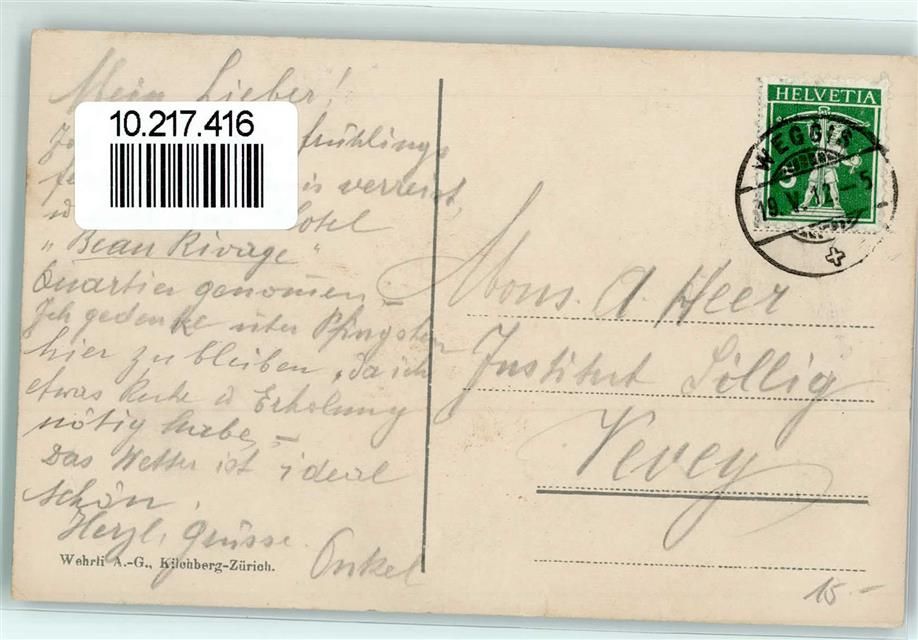 Mein Lieber!
10.217.416
frühlings
verreist,
Hotel
"Beau Rivage"
Quartier genomen –
Ich gedenke über Pfingsten
hier zu bleiben, da ich
etwas Ruhe & Erholung
nötig habe, –
Das Wetter ist ideal
schön.
Herzl. Grüsse.
Onkel
Wehrli A.-G., Kilchberg-Zürich.
HELVETIA
WEGGIS
19.V.14.–5
5
Mons. A. Heer
Institut Sillig
Vevey
15.–